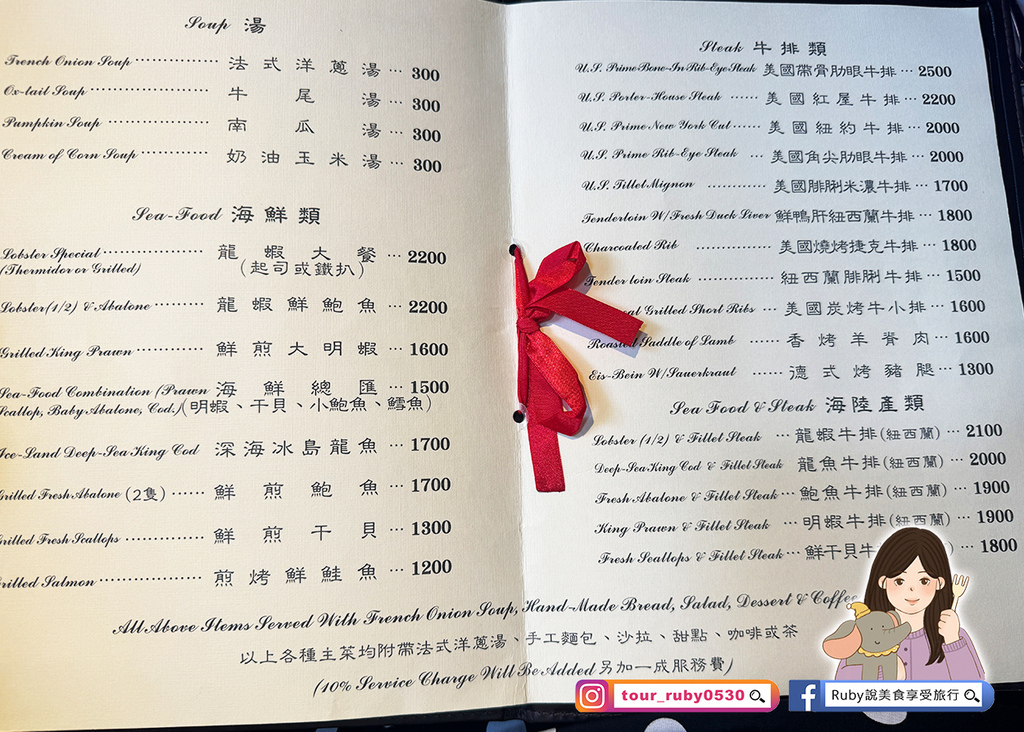 Soup 湯
French Onion Soup ··············· 法式洋蔥湯 ··· 300
Ox-tail Soup ··················· 牛尾湯 ··· 300
Pumpkin Soup ················ 南瓜湯 ··· 300
Cream of Corn Soup ············ 奶油玉米湯 ··· 300
Sea-Food 海鮮類
Lobster Special ················ 龍蝦大餐 ··· 2200
(Thermidor or Grilled) (起司或鐵扒)
Lobster(1/2) & Abalone ········ 龍蝦鮮鮑魚 ··· 2200
Grilled King Prawn ··········· 鮮煎大明蝦 ··· 1600
Sea-Food Combination (Prawn 海鮮總匯 ··· 1500
Scallop, Baby Abalone, Cod.)(明蝦、干貝、小鮑魚、鱈魚)
Ice-Land Deep-Sea King Cod 深海冰島龍魚 ··· 1700
Grilled Fresh Abalone (2隻) ······ 鮮煎鮑魚 ··· 1700
Grilled Fresh Scallops ············· 鮮煎干貝 ··· 1300
Grilled Salmon ················· 煎烤鮮鮭魚 ··· 1200
Steak 牛排類
U.S. Prime Bone-In Rib-Eye Steak 美國帶骨肋眼牛排 ··· 2500
U.S. Porter-House Steak ······ 美國紅屋牛排 ··· 2200
U.S. Prime New York Cut ······ 美國紐約牛排 ··· 2000
U.S. Prime Rib-Eye Steak ··· 美國角尖肋眼牛排 ··· 2000
U.S. Fillet Mignon ············ 美國腓脷米濃牛排 ··· 1700
Tenderloin W/Fresh Duck Liver 鮮鴨肝紐西蘭牛排 ··· 1800
Charcoaled Rib ··············· 美國燒烤捷克牛排 ··· 1800
Tenderloin Steak ············ 紐西蘭腓脷牛排 ··· 1500
Grilled Short Ribs ··· 美國炭烤牛小排 ··· 1600
Roasted Saddle of Lamb ······ 香烤羊脊肉 ··· 1600
Eis-Bein W/Sauerkraut ······ 德式烤豬腿 ··· 1300
Sea Food & Steak 海陸產類
Lobster (1/2) & Fillet Steak ··· 龍蝦牛排(紐西蘭) ··· 2100
Deep-Sea King Cod & Fillet Steak 龍魚牛排(紐西蘭) ··· 2000
Fresh Abalone & Fillet Steak ··· 鮑魚牛排(紐西蘭) ··· 1900
King Prawn & Fillet Steak ··· 明蝦牛排(紐西蘭) ··· 1900
Fresh Scallops & Fillet Steak ··· 鮮干貝牛 ··· 1800
All Above Items Served With French Onion Soup, Hand-Made Bread, Salad, Dessert & Coffee
以上各種主菜均附帶法式洋蔥湯、手工麵包、沙拉、甜點、咖啡或茶
(10% Service Charge Will Be Added 另加一成服務費)
tour_ruby0530
Ruby說美食享受旅行